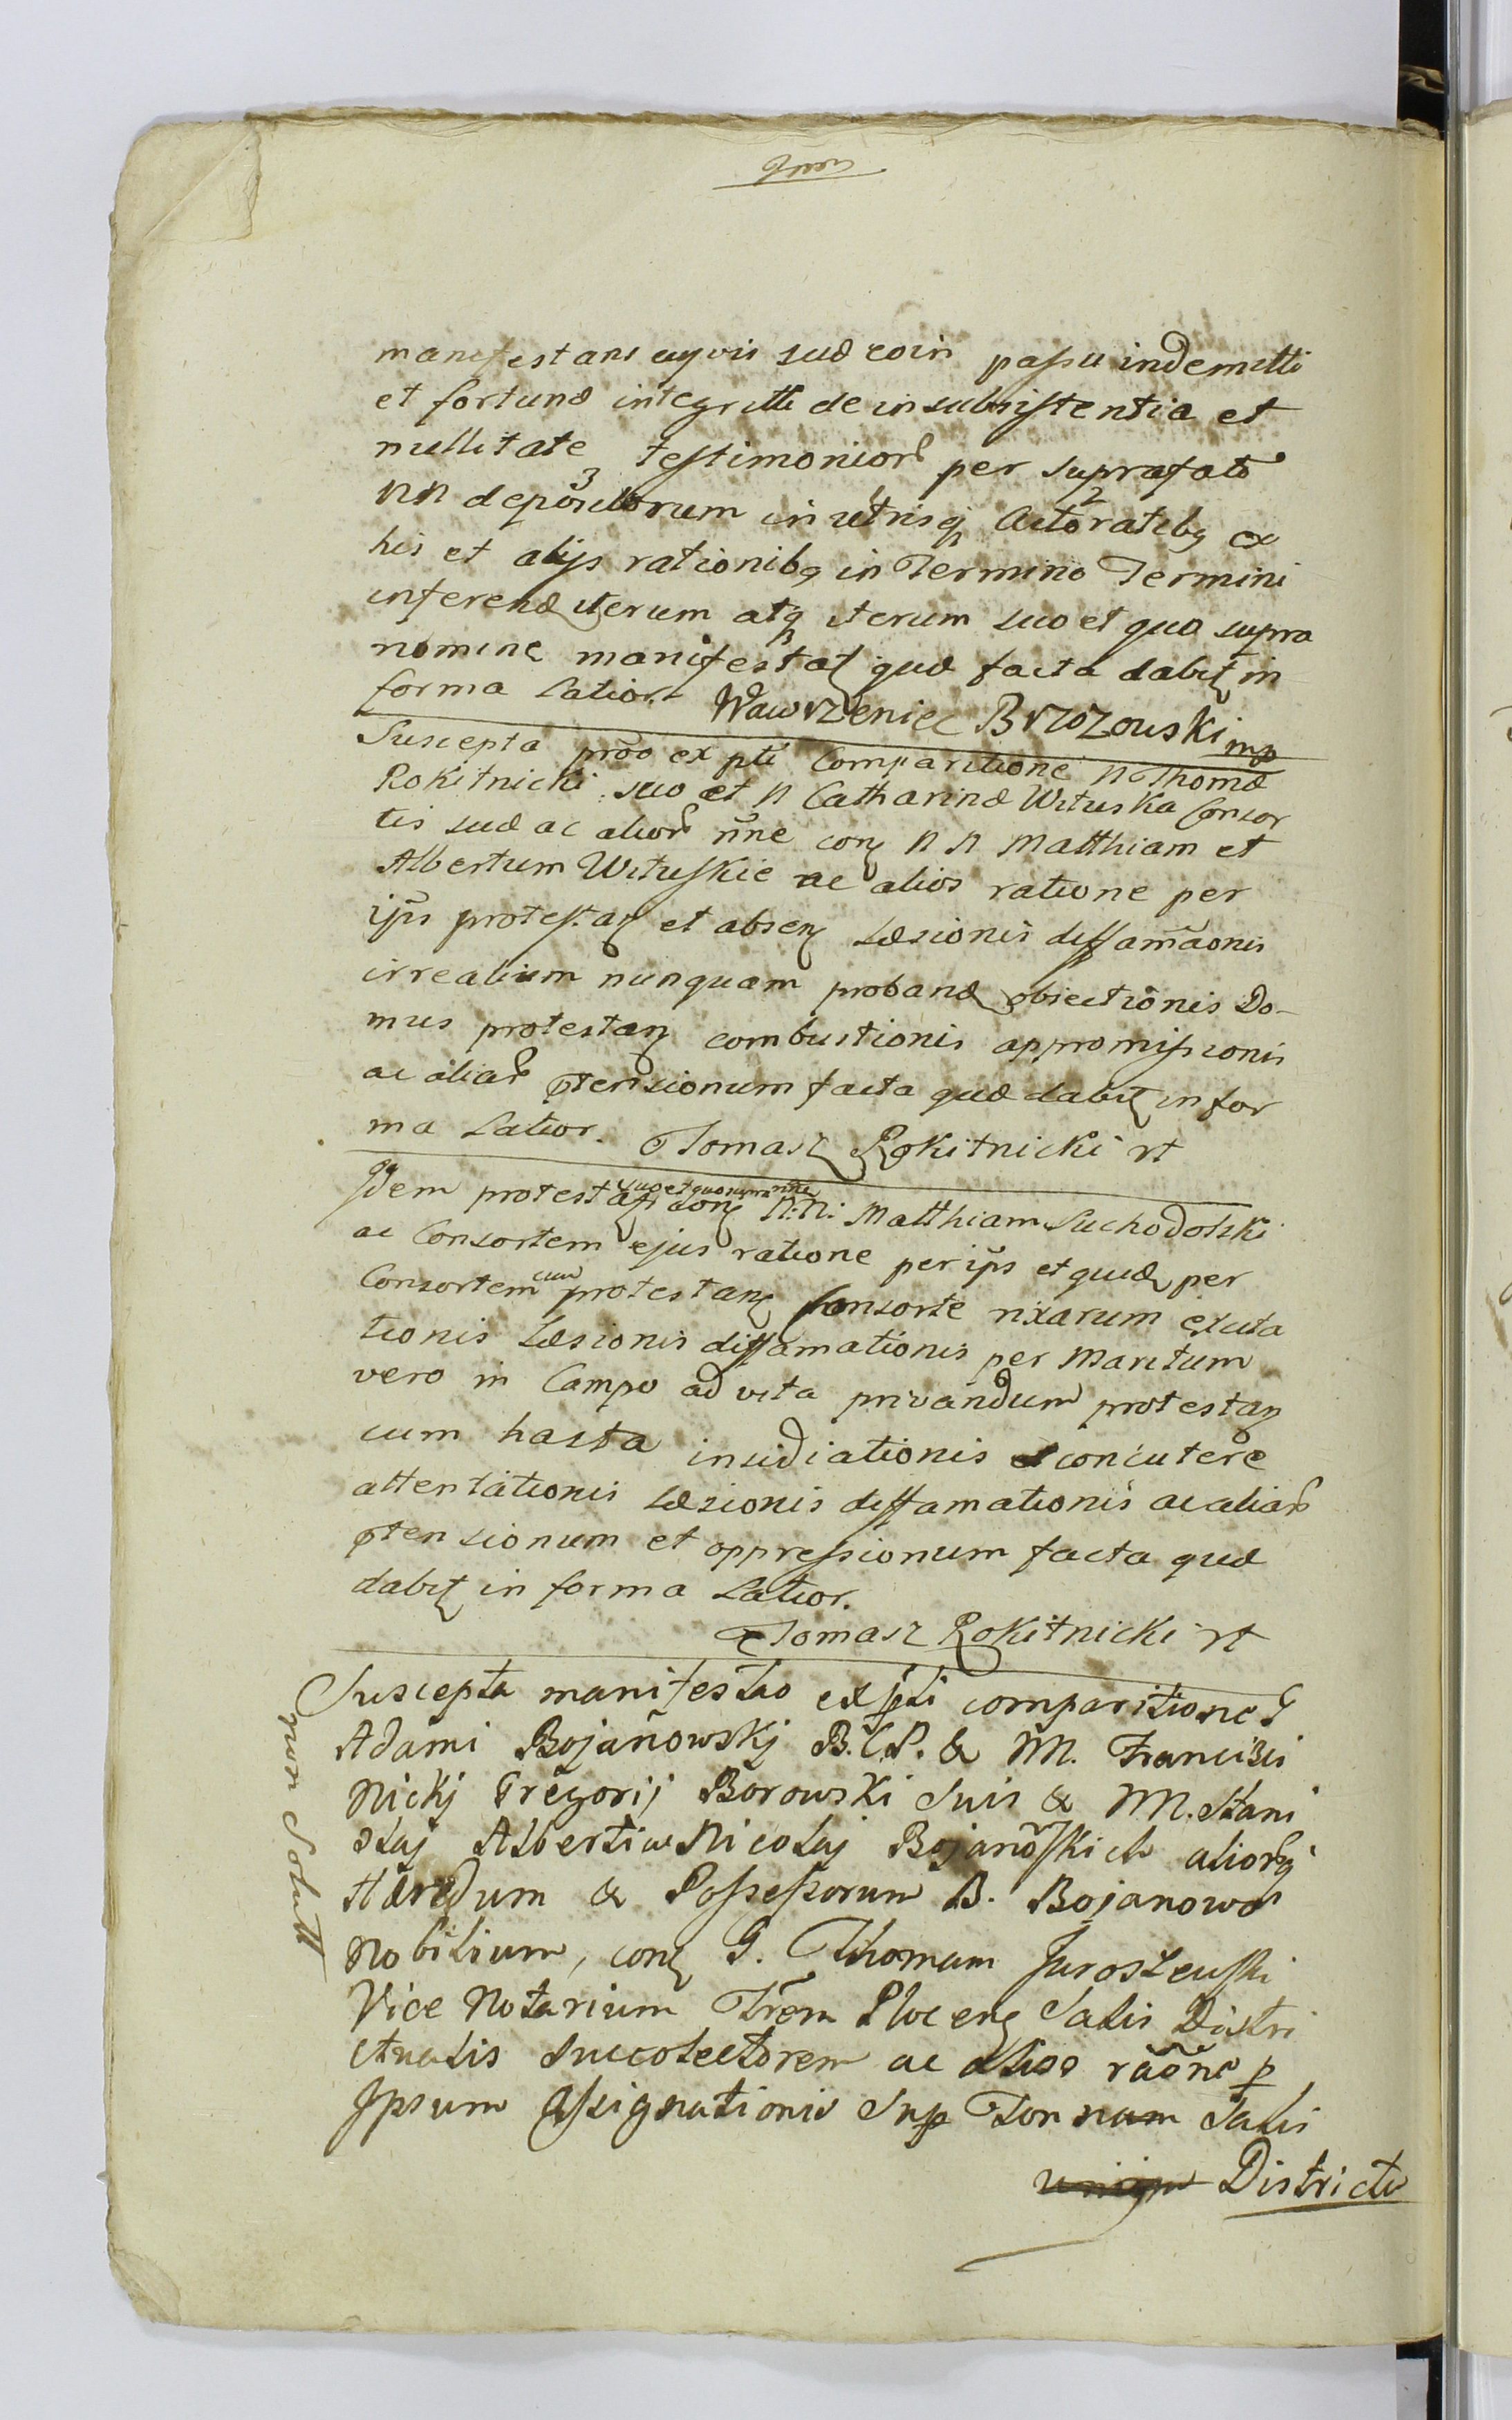 manifestans cujvis suæ coin passu indemitti
et fortunæ integritti de insubsistentia et
nullitate testimonior per suprafato
NN depositorum in utrisq Actoratibq ex
his et alijs rationibq in Termino Termini
inferend iterum atq iterum suo et quo supra
nomine manifestat quæ facta dabit in
forma Latior. Wawrzeniec Brzozouski mp
Suscepta prõo ex pti Comparitione N Thomæ
Rokitnicki suo et N Catharinæ Wituska Consor
tis suæ ac alior nne con N N Matthiam et
Albertum Wituskie ac alios ratione per
ijs protestan et absen Læsionis diffamãonis
irrealium nunquam proband obiectionis Do-
mus protestan combustionis appromissionis
ac aliar ptensionum facta quæ dabit in for
ma Latior. Tomasz Rokitnicki rt
Idem protestat suo et quo supra nne con N:N: Matthiam Suchodolski
ac Consortem ejus ratione per ijs et quid per
Consortem cum protestan Consorte rixarum excita
tionis Læsionis diffamationis per Maritum
vero in Campo ad vita privandum protestan
cum hasta insidiationis concutere
attentationis Læsionis diffamationis ac aliar
ptensionum et oppressionum facta quæ
dabit in forma Latior.
Tomasz Rokitnicki rt
Suscepta manifestao ex pti comparitione G
Adami Bojanowskj B.C.P. & M. Francisci
Nickj Gregorij Borowski Suis & M. Stani
slaj Alberti ac Nicolaj Bojanoskich aliorq
Hæredum & Possessorum B. Bojanowo
Nobilium, con G. Thomam Jaroszeuski
Vice Notarium Trem Plocen Salis Distri
ctualis Succolectorem ac alios raone p
Ipsum Assignationis Sup Ton nam Salis
Districti
non Solutt